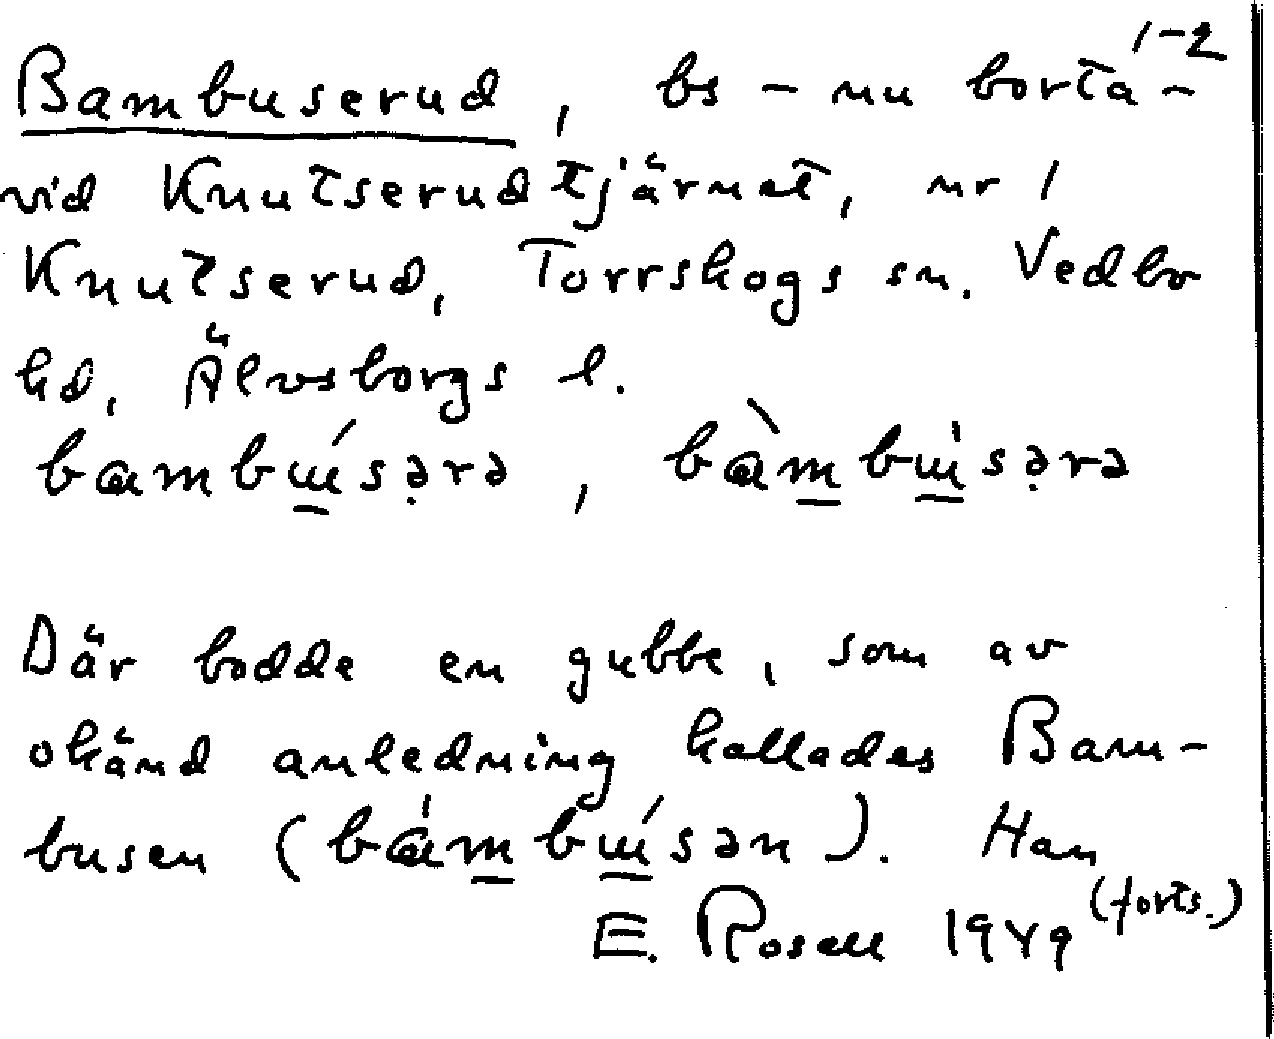 1-2
Bambuserud, bs - nu borta -
vid Knutserudtjärnet, nr 1
Knutserud, Torrskogs sn. Vedbo
hd, Älvsborgs l.
bambɯ́sərə, bàmbɯsərə
Där bodde en gubbe, som av
okänd anledning kallades Bam-
busen (bámbɯ́sən). Han
(forts.)
E. Rosell 1949